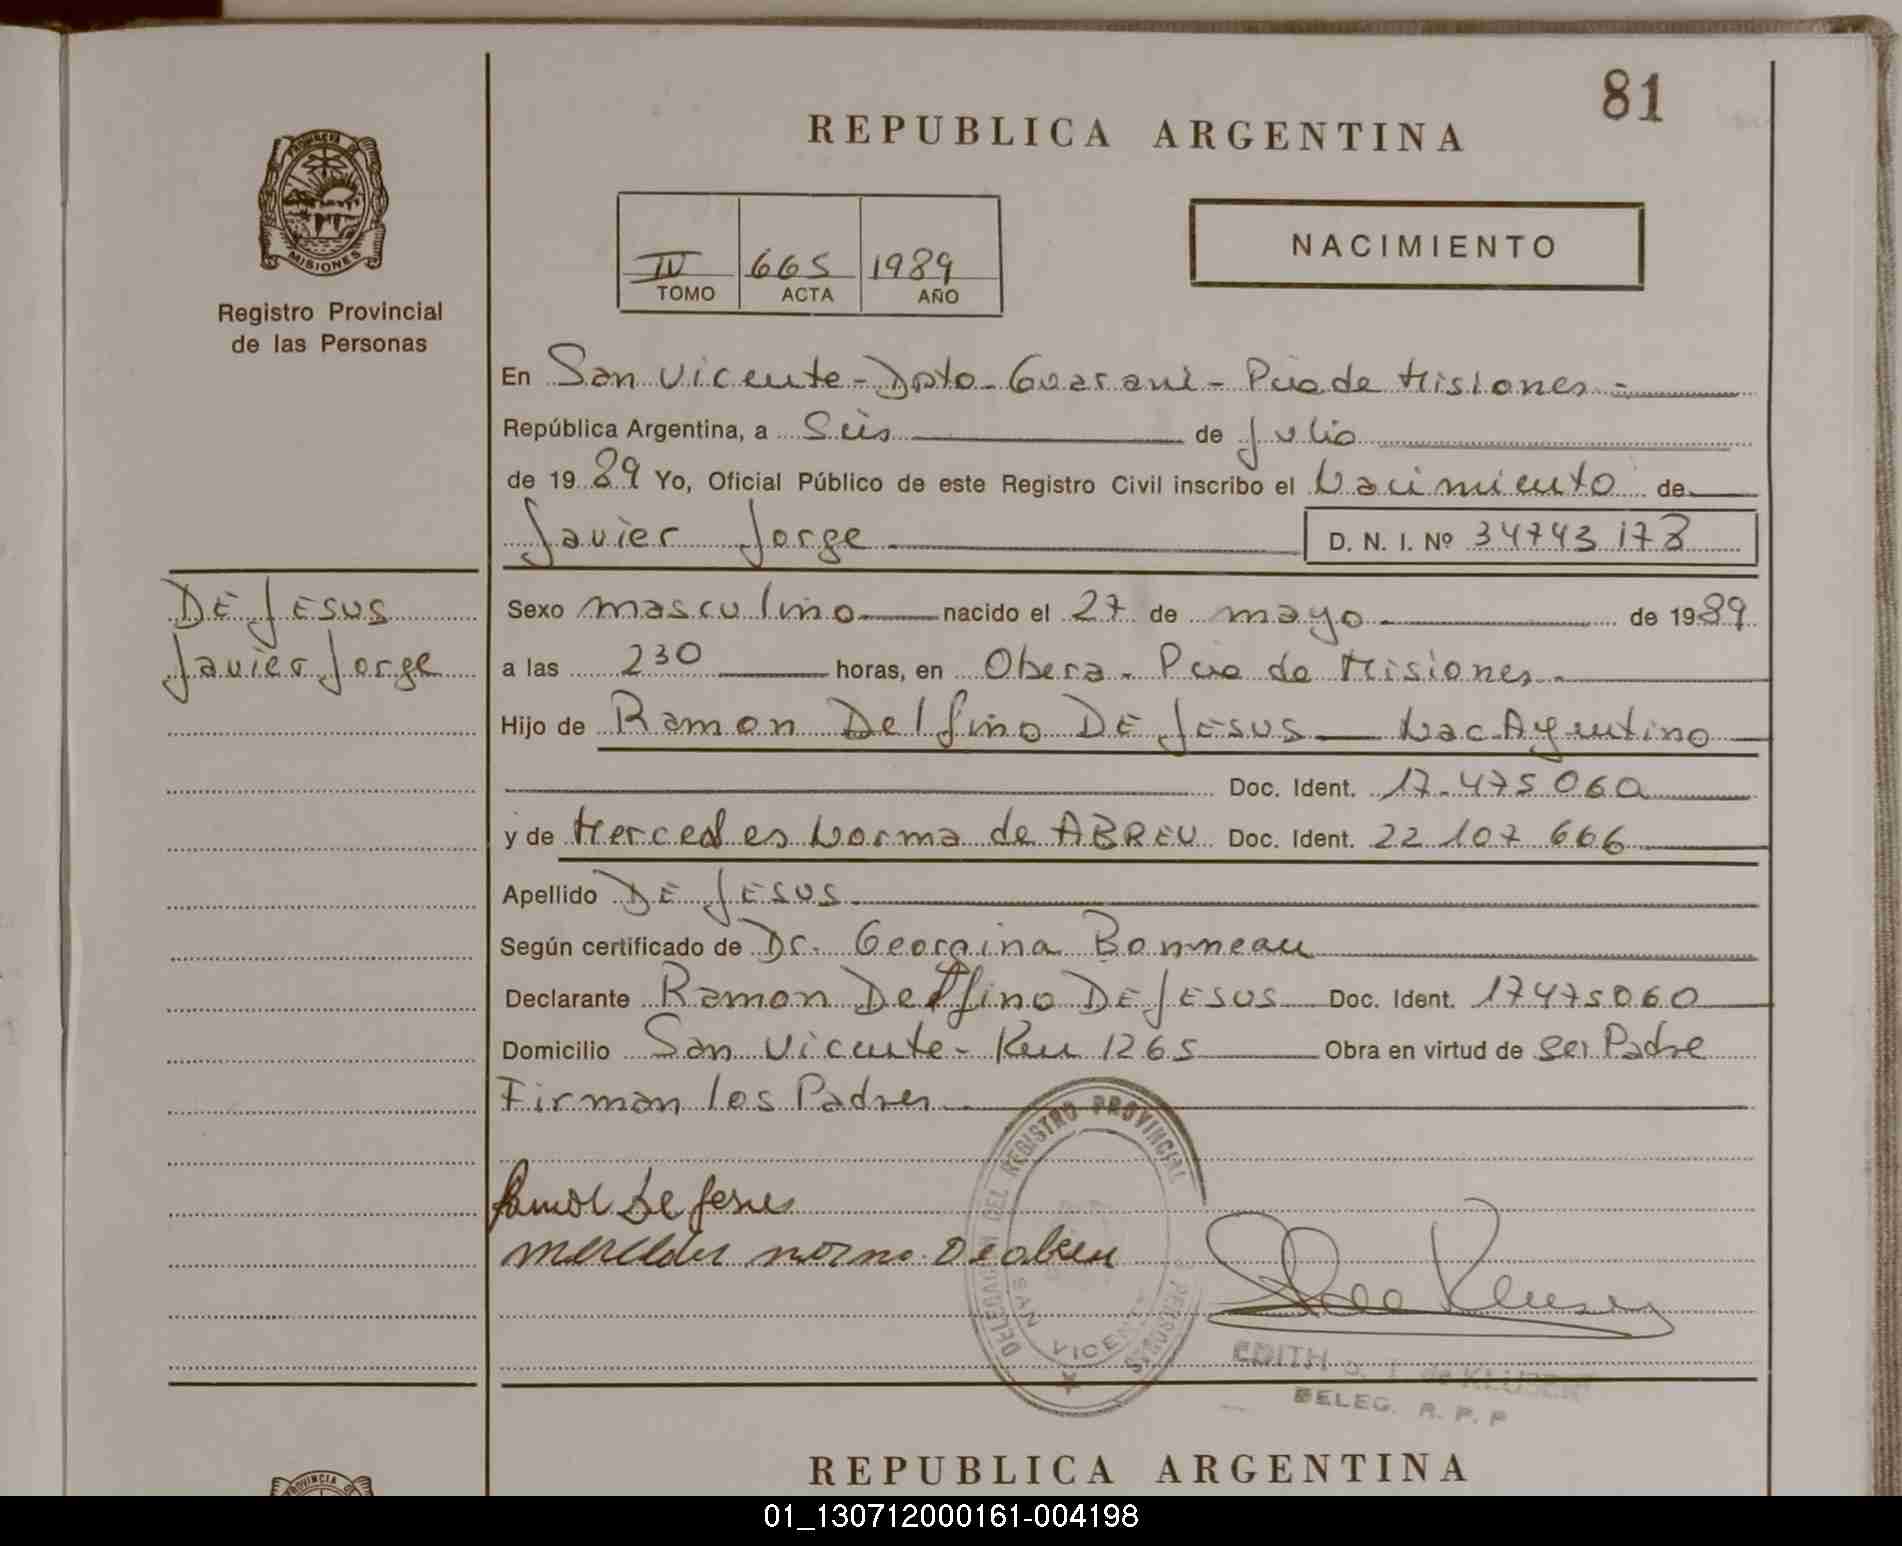 81
REPUBLICA ARGENTINA
PROVINCIA DE
MISIONES
Registro Provincial
de las Personas
NACIMIENTO
IV 665 1989
TOMO ACTA AÑO
En San Vicente - Dpto - Guarani - Pcia de Misiones -
República Argentina, a Seis de Julio
de 19 89 Yo, Oficial Público de este Registro Civil inscribo el Nacimiento de
Javier Jorge D. N. I. Nº 34743 178
DE JESUS
Javier Jorge
Sexo masculino nacido el 27 de mayo de 1989
a las 2 30 horas, en Obera - Pcia de Misiones -
Hijo de Ramon Delfino DE JESUS Nac. Argentino
Doc. Ident. 17.475 060
y de Mercedes Norma de ABREU Doc. Ident. 22 107 666
Apellido DE JESUS
Según certificado de Dr. Georgina Bonneau
Declarante Ramon Delfino DE JESUS Doc. Ident. 17475060
Domicilio San Vicente - Km 1265 Obra en virtud de ser Padre
Firman los Padres
DELEGACION DEL REGISTRO PROVINCIAL PERSONAS
SAN VICENTE
Ramon De Jesus
Mercedes norma De abreu
EDITH de KLUSER
DELEG. R. P. P
PROVINCIA
REPUBLICA ARGENTINA
01_130712000161-004198